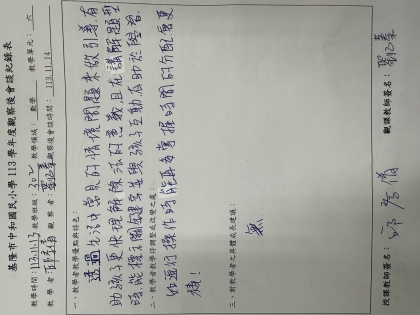 基隆市中和國民小學 113 學年度觀察後會談紀錄表
教學時間：113.11.13 教學班級：302 教學領域：數學 教學單元：六
教學者： 觀察者：劉 觀察後會談時間：113.11.14
一、教學者教學優點與特色：
透過生活中常見的情境問題來做引導，有
助孩子更快理解除法的意義，且在講解題型
時，能標示關鍵字並與孩子互動，有助於學習。
二、教學者教學待調整或改變之處：
進行操作時，能再多掌握時間的分配會更
棒！
三、對教學者之具體成長建議：
無
授課教師簽名： 邱 觀課教師簽名： 劉